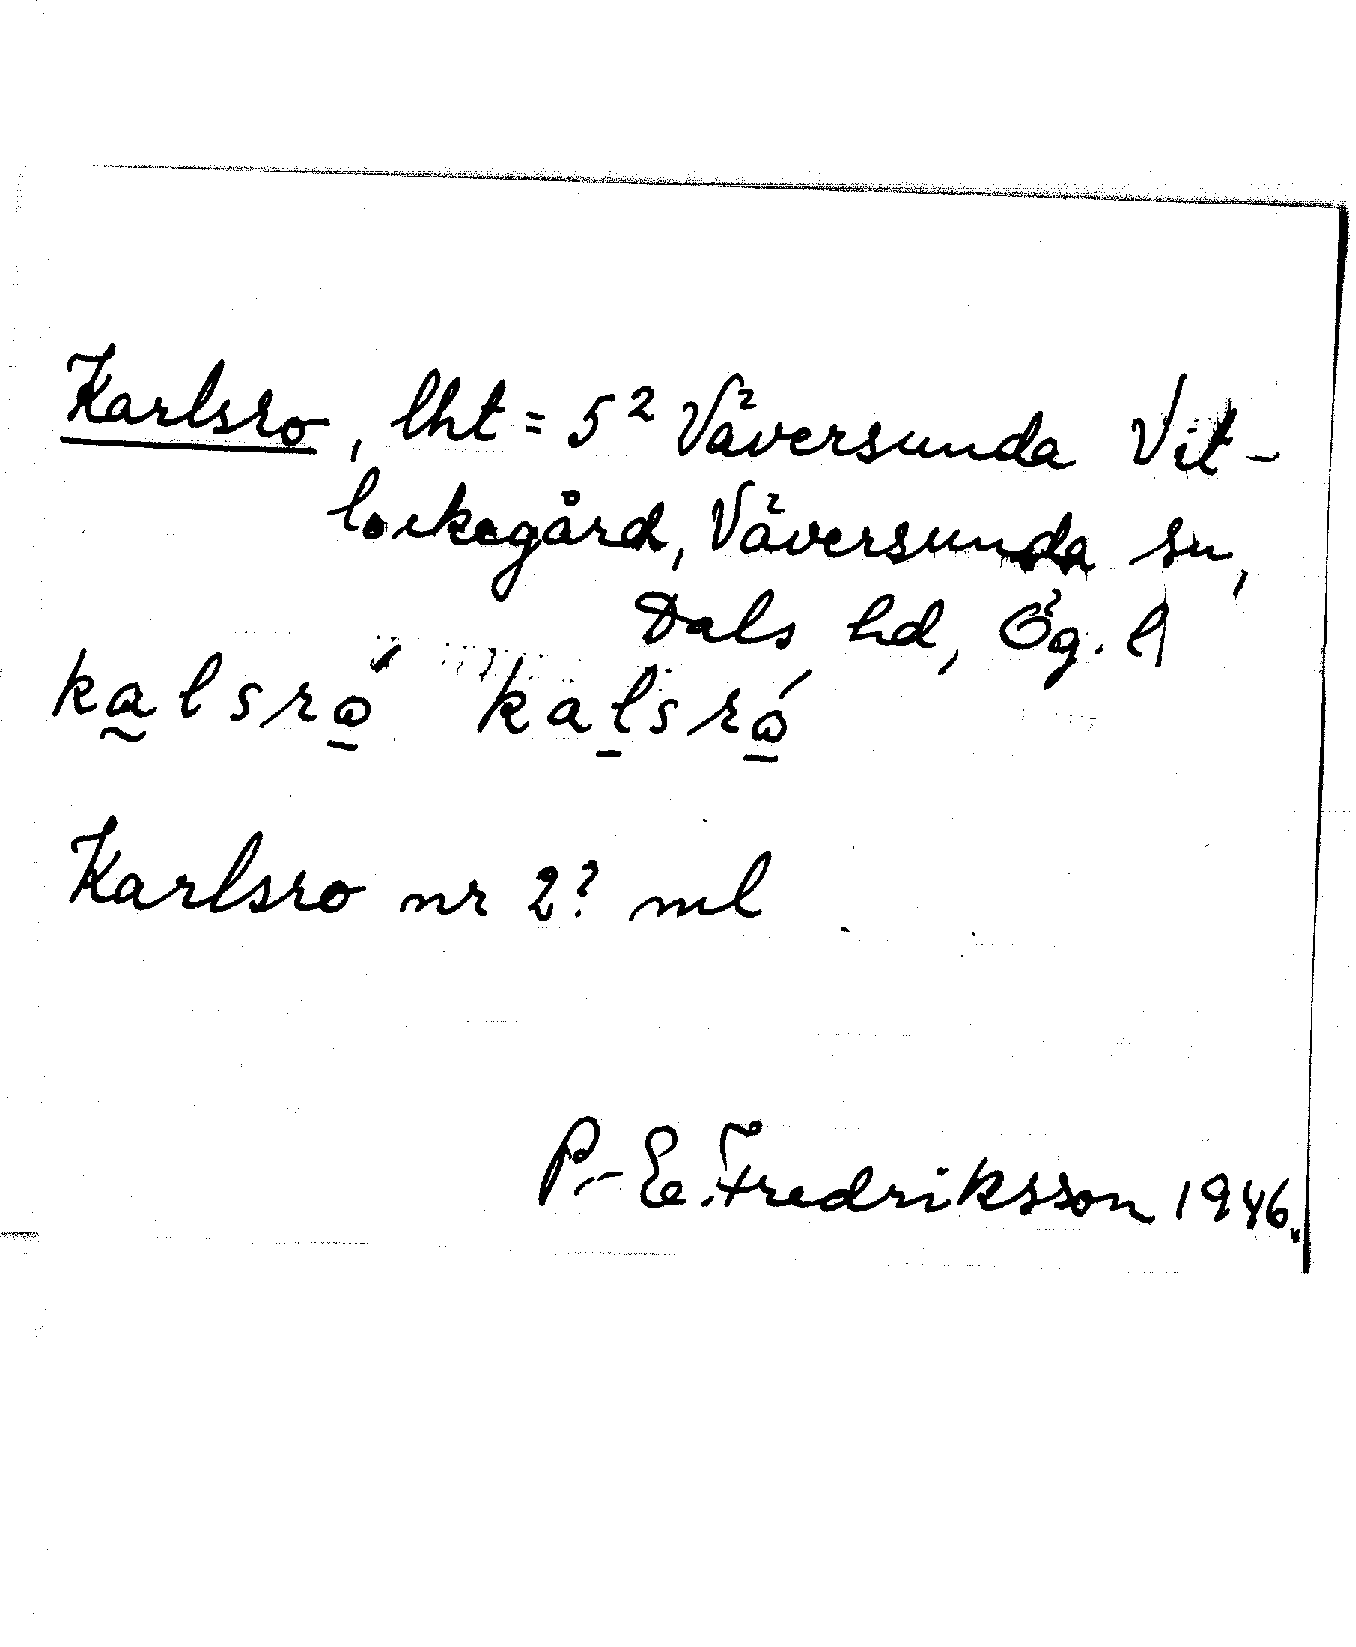 Karlsro, lht = 5² Väversunda Vit-
lockegård, Väversunda sn,
Dals hd, Ög. l
kalsrώ kalsrώ
Karlsro nr 2? ml
P.-E. Fredriksson 1946.